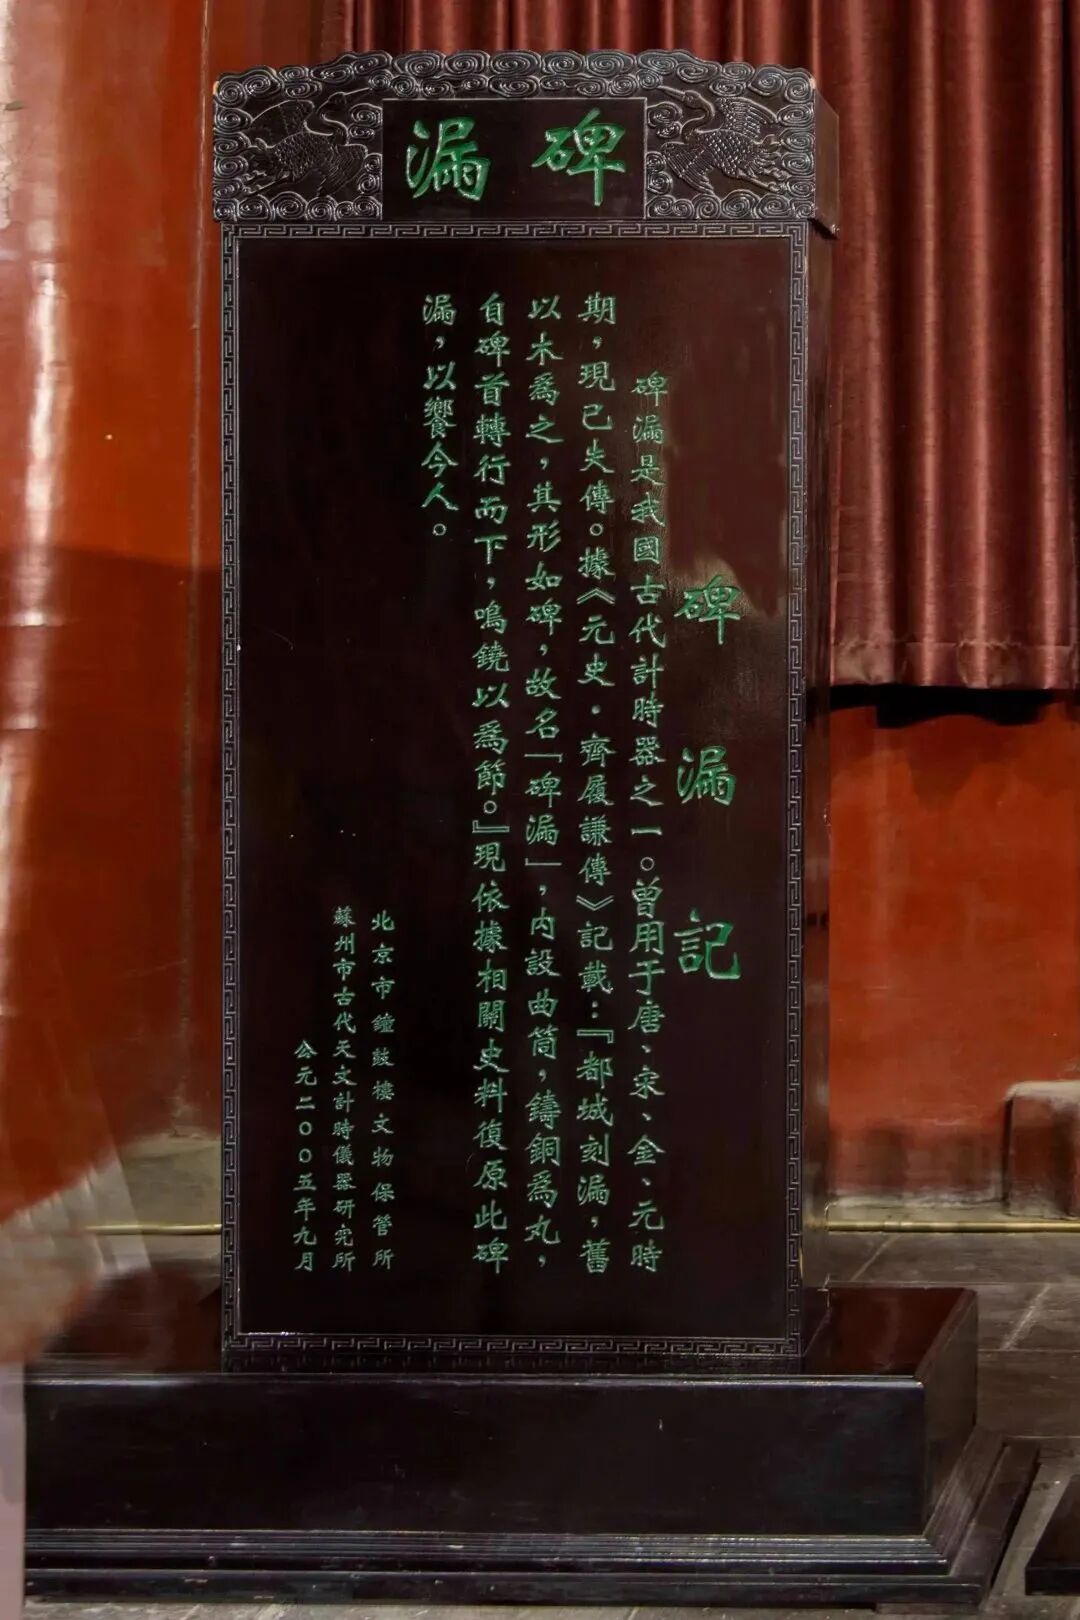 碑漏
碑漏記
碑漏是我國古代計時器之一。曾用于唐、宋、金、元時
期，現已失傳。據《元史·齊履謙傳》記載：『都城刻漏，舊
以木爲之，其形如碑，故名「碑漏」，内設曲筒，鑄銅爲丸，
自碑首轉行而下，鳴鐃以爲節。』現依據相關史料復原此碑
漏，以饗今人。
北京市鐘鼓樓文物保管所
蘇州市古代天文計時儀器研究所
公元二〇〇五年九月